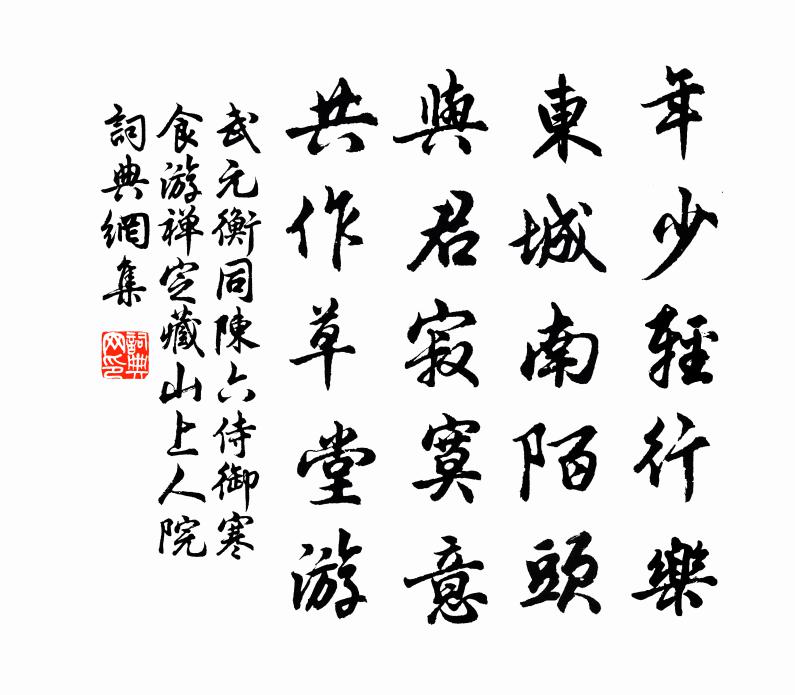 年少輕行樂
東城南陌頭
與君寂寞意
共作草堂游
武元衡同陳六侍御寒
食游禅定藏山上人院
詞典網集
詞典
网印